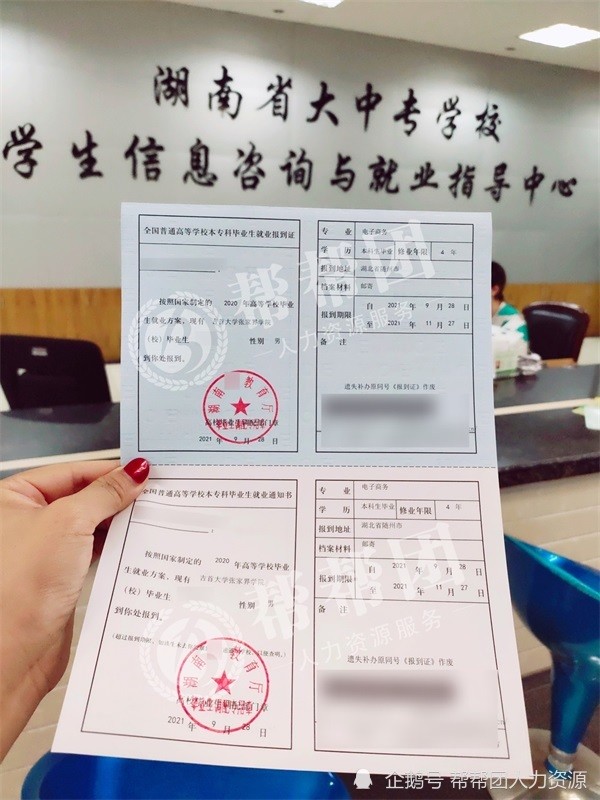 湖南省大中专学校
学生信息咨询与就业指导中心
全国普通高等学校本专科毕业生就业报到证
按照国家制定的 2020 年高等学校毕业
生就业方案,现有 吉首大学张家界学院
(校)毕业生 性别 男
到你处报到。
湖南 教育厅
2021 年 9 月 28 日
专 业 电子商务
学 历 本科生毕业 修业年限 4 年
报到地址 湖北省随州市
档案材料 邮寄
报到期限 自 2021 年 9 月 28 日
至 2021 年 11 月 27 日
备 注
遗失补办原同号《报到证》作废
全国普通高等学校本专科毕业生就业通知书
按照国家制定的 2020 年高等学校毕业
生就业方案,现有 吉首大学张家界学院
(校)毕业生 性别 男
到你处报到。
湖南 教育厅
2021 年 9 月 28 日
专 业 电子商务
学 历 本科生毕业 修业年限 4 年
报到地址 湖北省随州市
档案材料 邮寄
报到期限 自 2021 年 9 月 28 日
至 2021 年 11 月 27 日
备 注
遗失补办原同号《报到证》作废
帮帮团
人力资源服务
帮帮团
人力资源服务
企鹅号 帮帮团人力资源